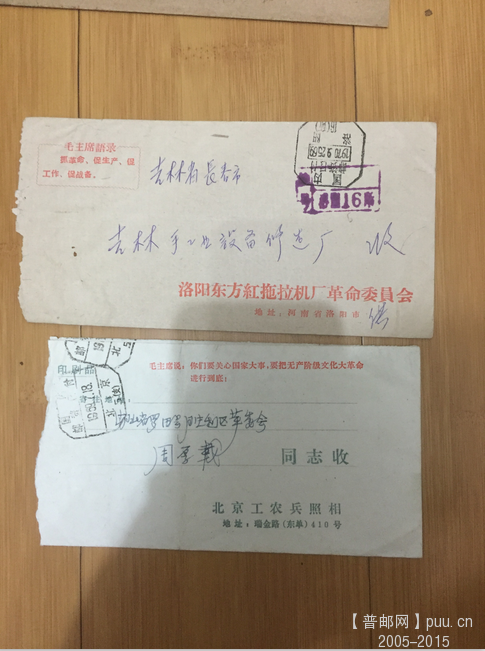 毛主席語录
抓革命、促生产、促
工作、促战备。
吉林省長春市
吉林手工业設备修造厂 收
洛阳东方紅拖拉机厂革命委員会
地址：河南省洛阳市
国
内
毛主席说：你们要关心国家大事，要把无产阶级文化大革命
进行到底！
革委会
同志收
北京工农兵照相
地址：瑞金路(东单)410号
【普邮网】puu.cn
2005-2015